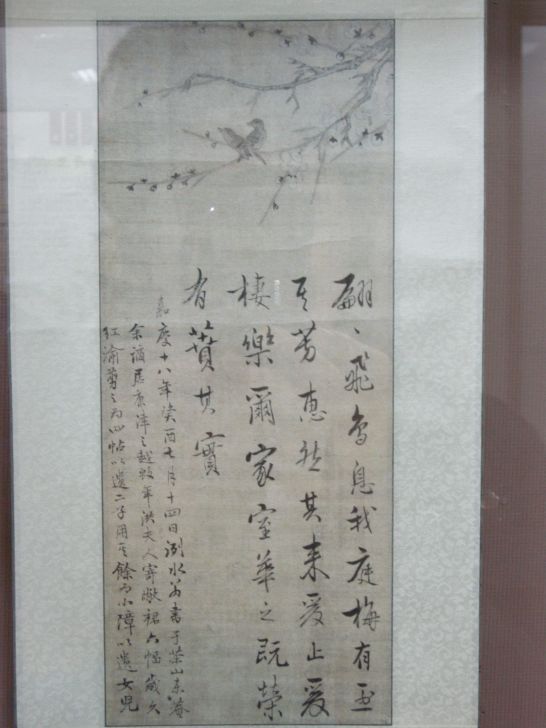 翩〻飛鳥息我庭梅有烈
其芳惠然其來爰止爰
棲樂爾家室華之既榮
有蕡其實
嘉慶十八年癸酉七月十四日洌水翁書于茶山東菴
余謫居康津之越數年洪夫人寄敝裙六幅歲久
紅渝剪之爲四帖以遺二子用其餘爲小障以遺女兒